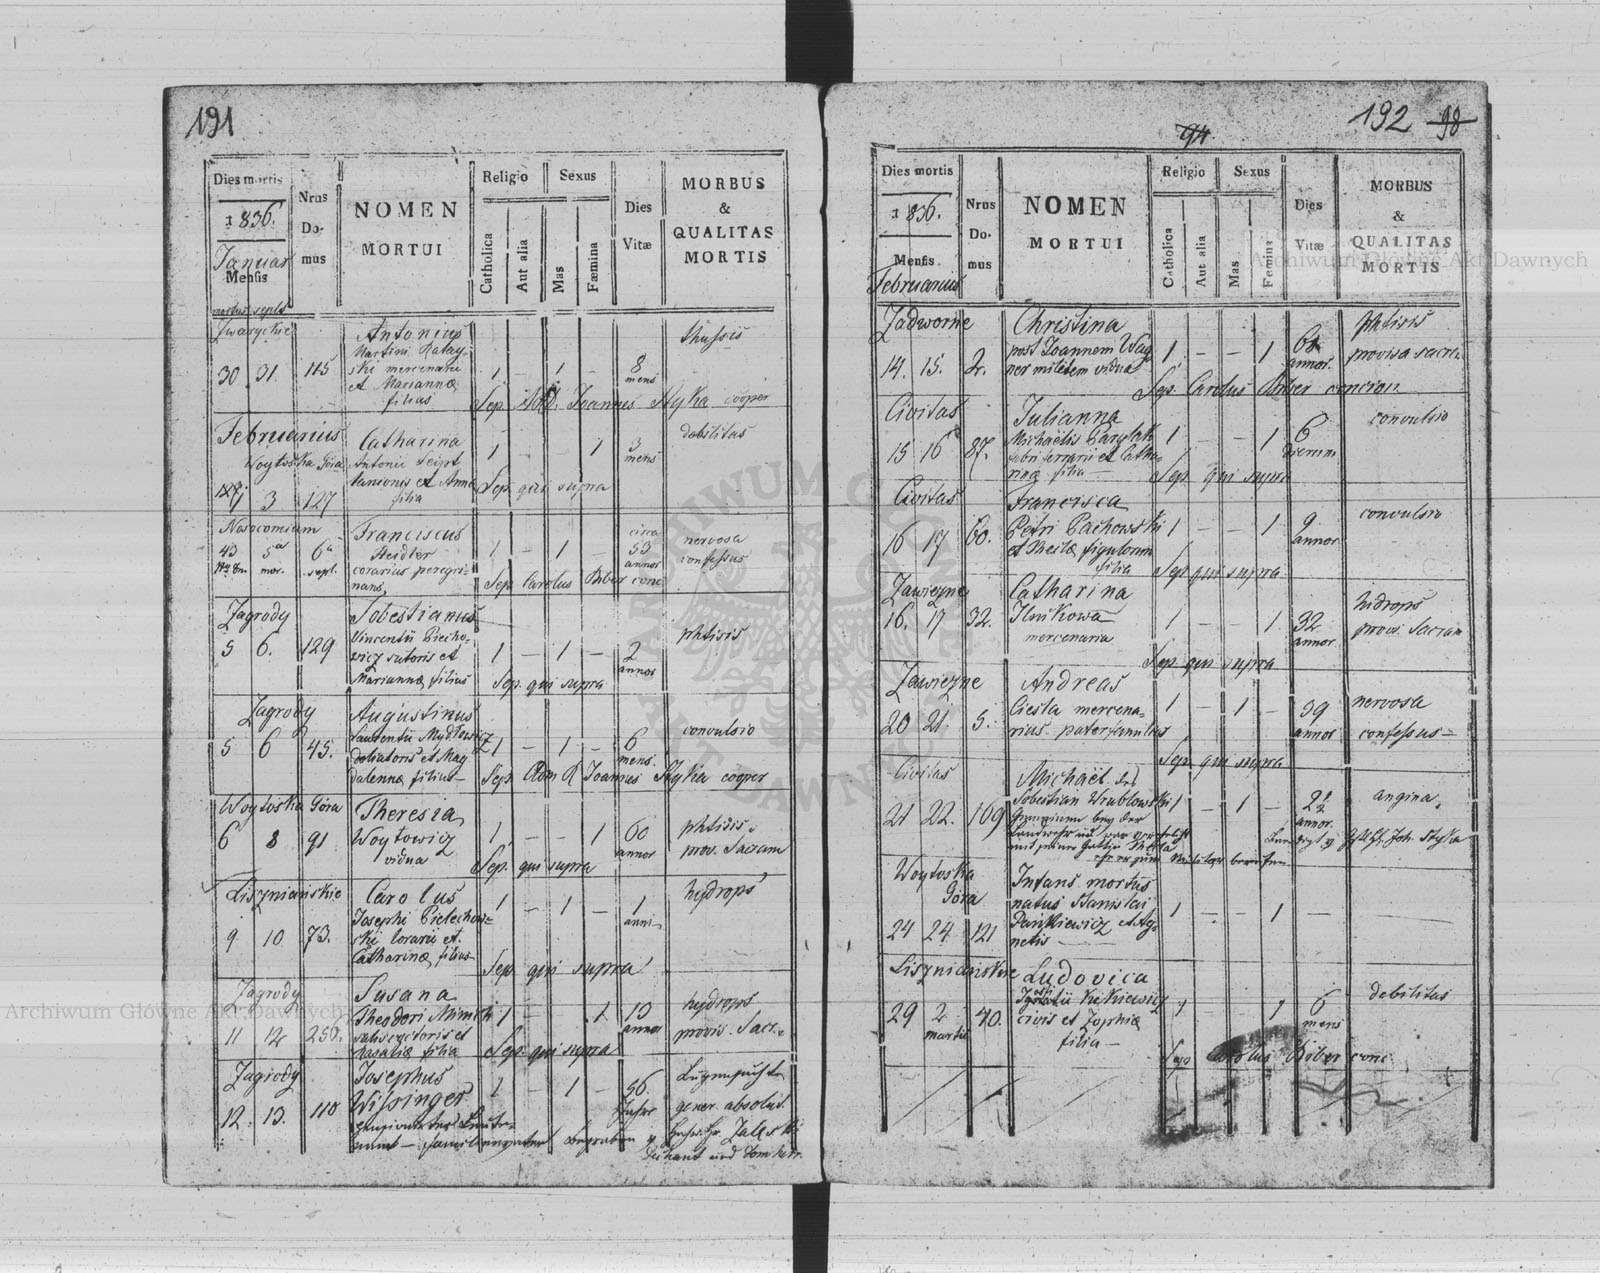 191
Dies mortis
1836.
Januar
Mensis
mortus sepult
Nrus
Do-
mus
NOMEN
MORTUI
Religio
Catholica
Aut alia
Sexus
Mas
Fæmina
Dies
Vitæ
MORBUS
&
QUALITAS
MORTIS
Zwaryckie
30 31. 115
Antonius
Martini Ratay-
ski mercenarii
et Mariannæ
filius
1 - 1 -
8
mens
thussis
Sep. Joannes Styka cooper
Februarius
Woytoska Góra
1 3 127
Catharina
Antonii
lanionis et Annæ
filia
1 1
3
mens
debilitas
Sep. qui supra
Nosocomium
43 5ta 6ta
mor. sept.
Franciscus
Heidler
corarius peregri-
nans,
1 - 1 -
circa
53
annor
nervosa
confessus
Sep. Carolus Biber conc
Zagrody
5 6. 129
Sobestianus
Vincentii Piecho-
wicz sutoris et
Mariannæ filius
1 - 1 -
2
annor
phtisis
Sep. qui supra
Zagrody
5 6 45.
Augustinus
Laurentii Mydlowicz
doliatoris et Mag
dalennæ filius
1 - 1 -
6
mens.
convulsio
Sep. Joannes Styka cooper
Woytoska Góra
6 8 91
Theresia
Woytowicz
vidua
1 - - 1
60
annor
phtisis
prov. Sacram
Sep. qui supra
Liszniańskie
9 10 73.
Carolus
Josephi Pielechow-
ski lorarii et
Catharinæ filius
1 - 1 -
1
anni
hydrops
Sep. qui supra
Zagrody
11 12 256.
Susana
Theodori
et
Rosaliæ filia
1 - - 1
13
annor
hydrops
provis. Sacr.
Sep. qui supra
Zagrody
12. 13. 110
Josephus
Wissinger
1 - 1 -
56
Jahr
gener. absolut.
begraben
Zaleski
Dechant und Domherr.
192 98
94
Dies mortis
1836.
Mensis
Februarius
Nrus
Do-
mus
NOMEN
MORTUI
Religio
Catholica
Aut alia
Sexus
Mas
Femina
Dies
Vitæ
MORBUS
&
QUALITAS
MORTIS
Zadworne
14. 15. 2.
Christina
post Joannem Wag
ner militem vidua
1 - - 1
annor.
phtisis
provisa sacra
Sep. Carolus Biber concion
Civitas
15 16 87.
Julianna
Michaëlis Parylak
fabri ferrarii et Catha-
rinæ filia
1 - - 1
6
dierum
convulsio
Sep. qui supra
Civitas
16 17 60.
Francisca
Petri Pachowski
et Theclæ figulorum
filia
1 - - 1
9
annor
convulsio
Sep. qui supra
Zawiezne
16. 17 32.
Catharina
Ilnikowa
mercenaria
1 - - 1
32
annor
hidrops
prov. Sacram
Sep. qui supra
Zawiezne
20 21. 5.
Andreas
Ciesla mercena-
rius paterfamilias
1 - 1 -
39
annor
nervosa
confessus
Sep. qui supra
Civitas
21 22. 169
Michaël des
Sobestian Wrublowski
bey der
Landwehr
mit seiner Gattin Thecla
1 - 1 -
2½
annor.
angina.
Joh. Styka
Woytoska
Góra
24 24 121
Infans mortus
natus Stanislai
Pańkiewicz et Ag-
netis
1 - 1 -
Liszniańskie
29 2 40.
martii
Ludovica
Kikiewicz
civis et Zophiæ
filia
1 - - 1
6
mens
debilitas
Sep. Carolus Biber conc
Archiwum Główne Akt Dawnych
Archiwum Główne Akt Dawnych
ARCHIWUM GŁÓWNE AKT DAWNYCH